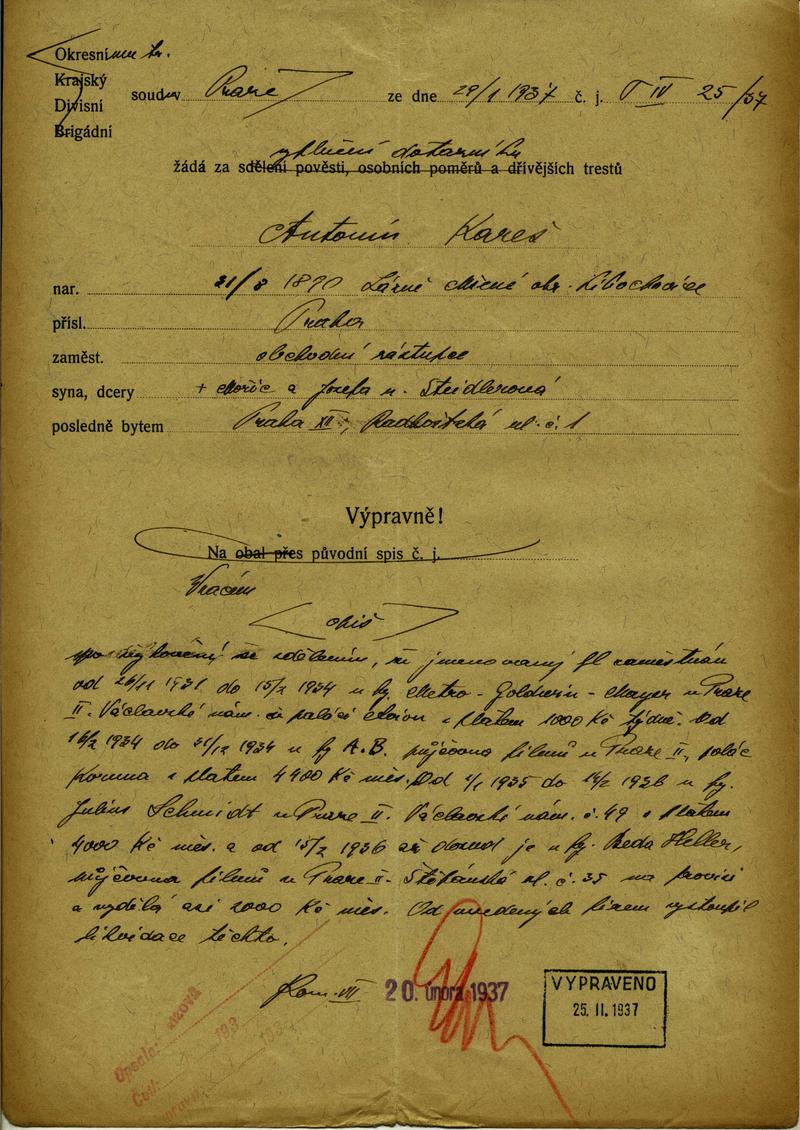 Okresnímu tr.
Krajský
Divisní
Brigádní
soud v Praze ze dne 29/1 1937 č. j. T IV 25/37
vyplnění dotazníku
žádá za sdělení pověsti, osobních poměrů a dřívějších trestů
Antonín Kareš
nar. 21/8 1890 okr. Libochovice
přísl. Praha
zaměst. obchodní zástupce
syna, dcery + Moric a Josefa r. Steidlerová
posledně bytem Praha XII, Radhošťská ul. č. 1
Výpravně!
Na obal přes původní spis č. j.
Vracím
opis
se sdělením, že jmenovaný byl zaměstnán
od 26/11 1931 do 15/2 1934 u fy Metro - Goldwin - Mayer v Praze
II. Václavské nám. paláci s platem 1000 Kč týdně. Od
16/2 1934 do 31/12 1934 u fy A.B. půjčovna filmů v Praze II, palác
Koruna s platem 4400 Kč měs. Od 1/1 1935 do 14/2 1936 u fy.
Julius Schmidt v Praze II. Václavské nám. č. 49 s platem
4000 Kč měs. a od 15/2 1936 až dosud je u fy. Beda Heller,
půjčovna filmů v Praze II - Štěpánská ul. č. 35 na provisi
a vydělá asi 2000 Kč měs. Od uvedených firem vystoupil
likvidace těchto.
Kom. VII 20. února 1937
VYPRAVENO
25. II. 1937
Opsala:
193